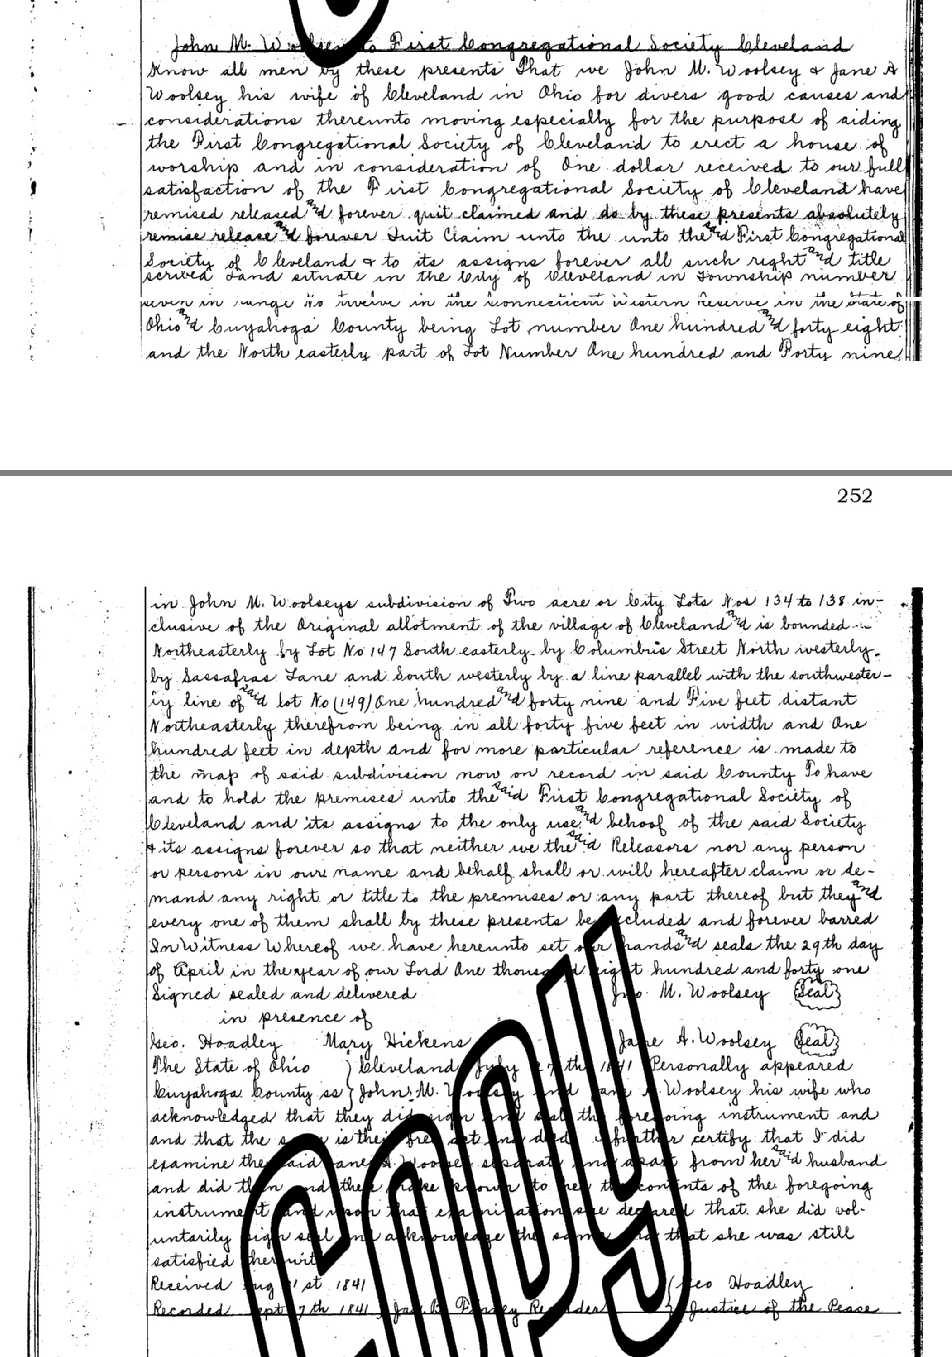 John M. Woolsey to First Congregational Society Cleveland
Know all men by these presents That we John M. Woolsey & Jane A
Woolsey his wife of Cleveland in Ohio for divers good causes and
considerations thereunto moving especially for the purpose of aiding
the First Congregational Society of Cleveland to erect a house of
worship and in consideration of One dollar received to our full
satisfaction of the First Congregational Society of Cleveland have
remised released and forever quit claimed and do by these presents absolutely
remise release and forever Quit Claim unto the unto the said First Congregational
Society of Cleveland & to its assigns forever all such right and title
scrived Land situate in the City of Cleveland in Township number
seven in range No twelve in the Connecticut Western Reserve in the State of
Ohio and Cuyahoga County being Lot number One hundred and forty eight
and the North easterly part of Lot Number One hundred and Forty nine
252
in John M. Woolseys subdivision of Two acre or City Lots Nos 134 to 138 in-
clusive of the Original allotment of the village of Cleveland and is bounded
Northeasterly by Lot No 147 South easterly by Columbus Street North westerly
by Sassafras Lane and South westerly by a line parallel with the southwester-
ly line of said lot No (149) One hundred and forty nine and Five feet distant
Northeasterly therefrom being in all forty five feet in width and One
hundred feet in depth and for more particular reference is made to
the map of said subdivision now on record in said County To have
and to hold the premises unto the said First Congregational Society of
Cleveland and its assigns to the only use and behoof of the said Society
& its assigns forever so that neither we the said Releasors nor any person
or persons in our name and behalf shall or will hereafter claim or de-
mand any right or title to the premises or any part thereof but they and
every one of them shall by these presents be excluded and forever barred
In Witness Whereof we have hereunto set our hands and seals the 29th day
of April in the year of our Lord One thousand eight hundred and forty one
Signed sealed and delivered Jno M. Woolsey Seal
in presence of
Geo. Hoadley Mary Hickens Jane A. Woolsey Seal
The State of Ohio } Cleveland July 27th 1841 Personally appeared
Cuyahoga County ss } John M. Woolsey and Jane A. Woolsey his wife who
acknowledged that they did sign and seal the foregoing instrument and
and that the same is their free act and deed I further certify that I did
examine the said Jane A. Woolsey separate and apart from her said husband
and did then and there make known to her the contents of the foregoing
instrument and upon that examination she declared that she did vol-
untarily sign seal and acknowledge the same and that she was still
satisfied therewith
Received Aug 21st 1841 Geo Hoadley
Recorded Sept 7th 1841 Jas B. Finney Recorder } Justice of the Peace
Copy